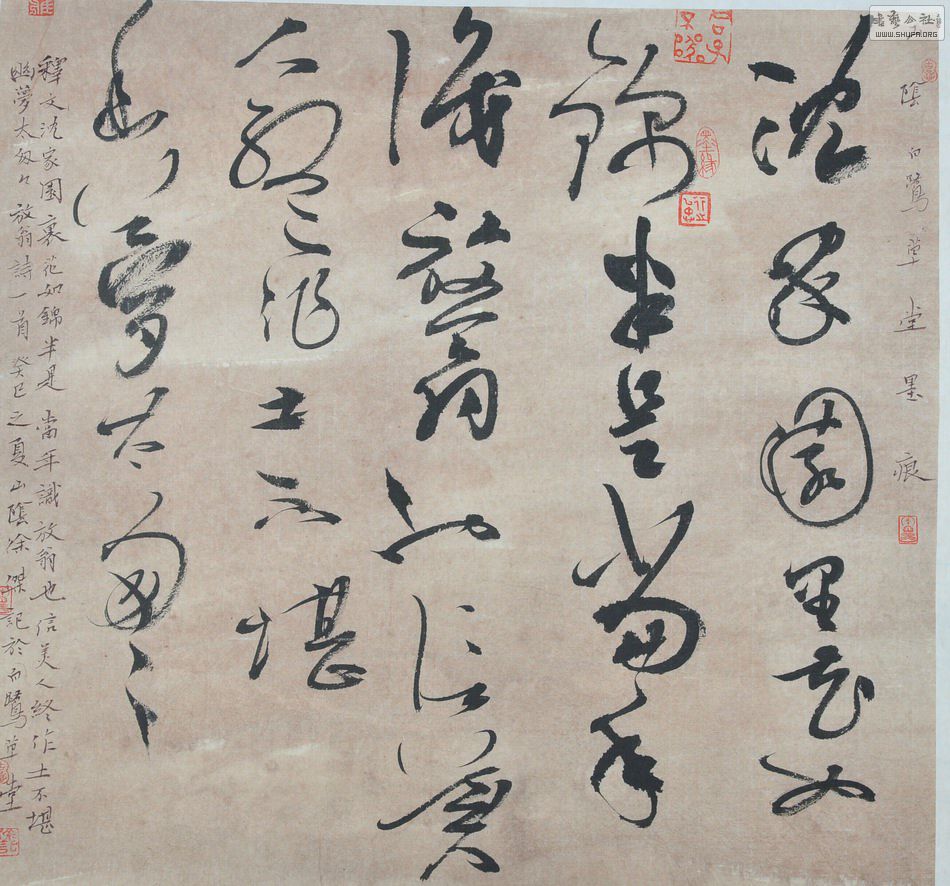 書藝公社
www.SHUFA.ORG
陰白鷺草堂墨痕
沈家園里花如
錦半是當年
識放翁也信美
人終作土不堪
幽夢太匆々
釋文沈家園裏花如錦半是當年識放翁也信美人終作土不堪
幽夢太匆々放翁詩一首癸巳之夏山陰徐傑記於白鷺草堂